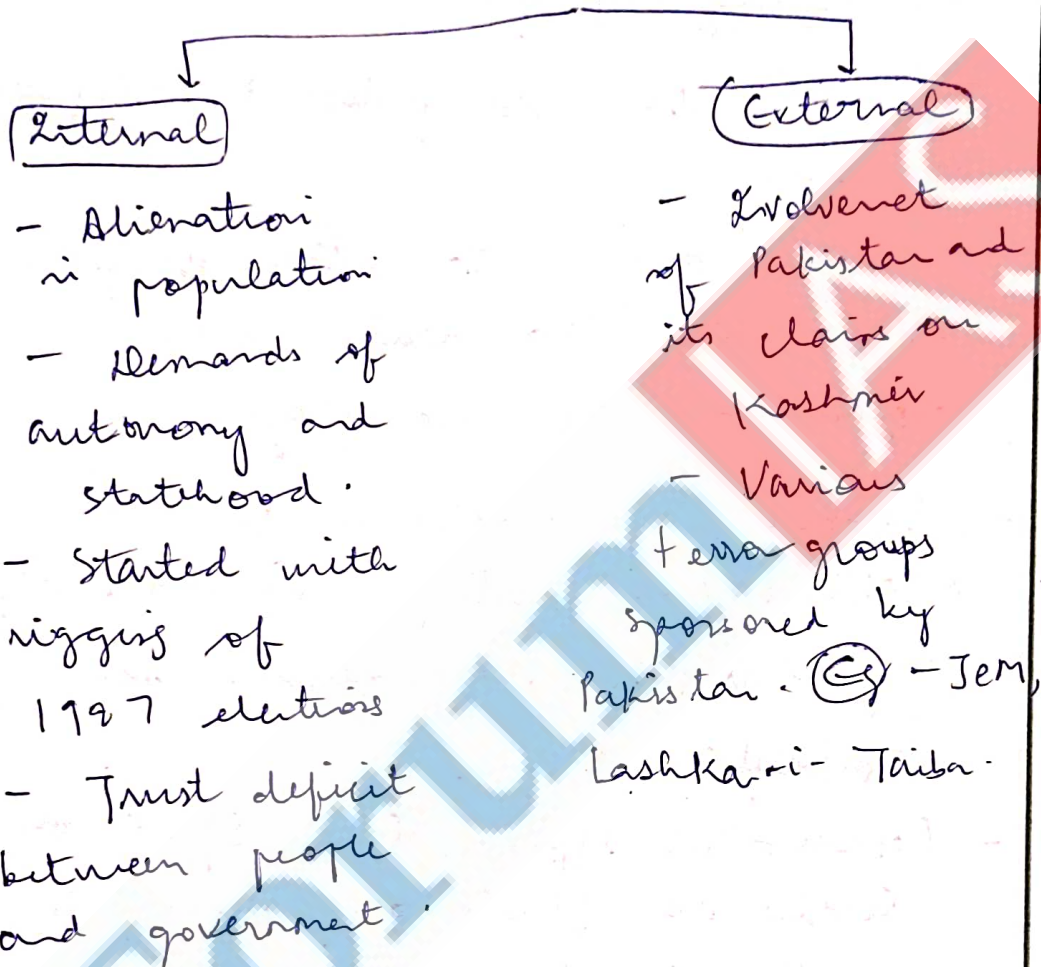 Internal
- Alienation
in population
- Demands of
autonomy and
statehood.
- Started with
rigging of
1987 elections
- Trust deficit
between people
and government.
External
- Involvemet
of Pakistan and
its claims on
Kashmir
- Various
terror groups
sponsored by
Pakistan. Eg - JeM,
Lashkar-i-Taiba.
Forum
IAS